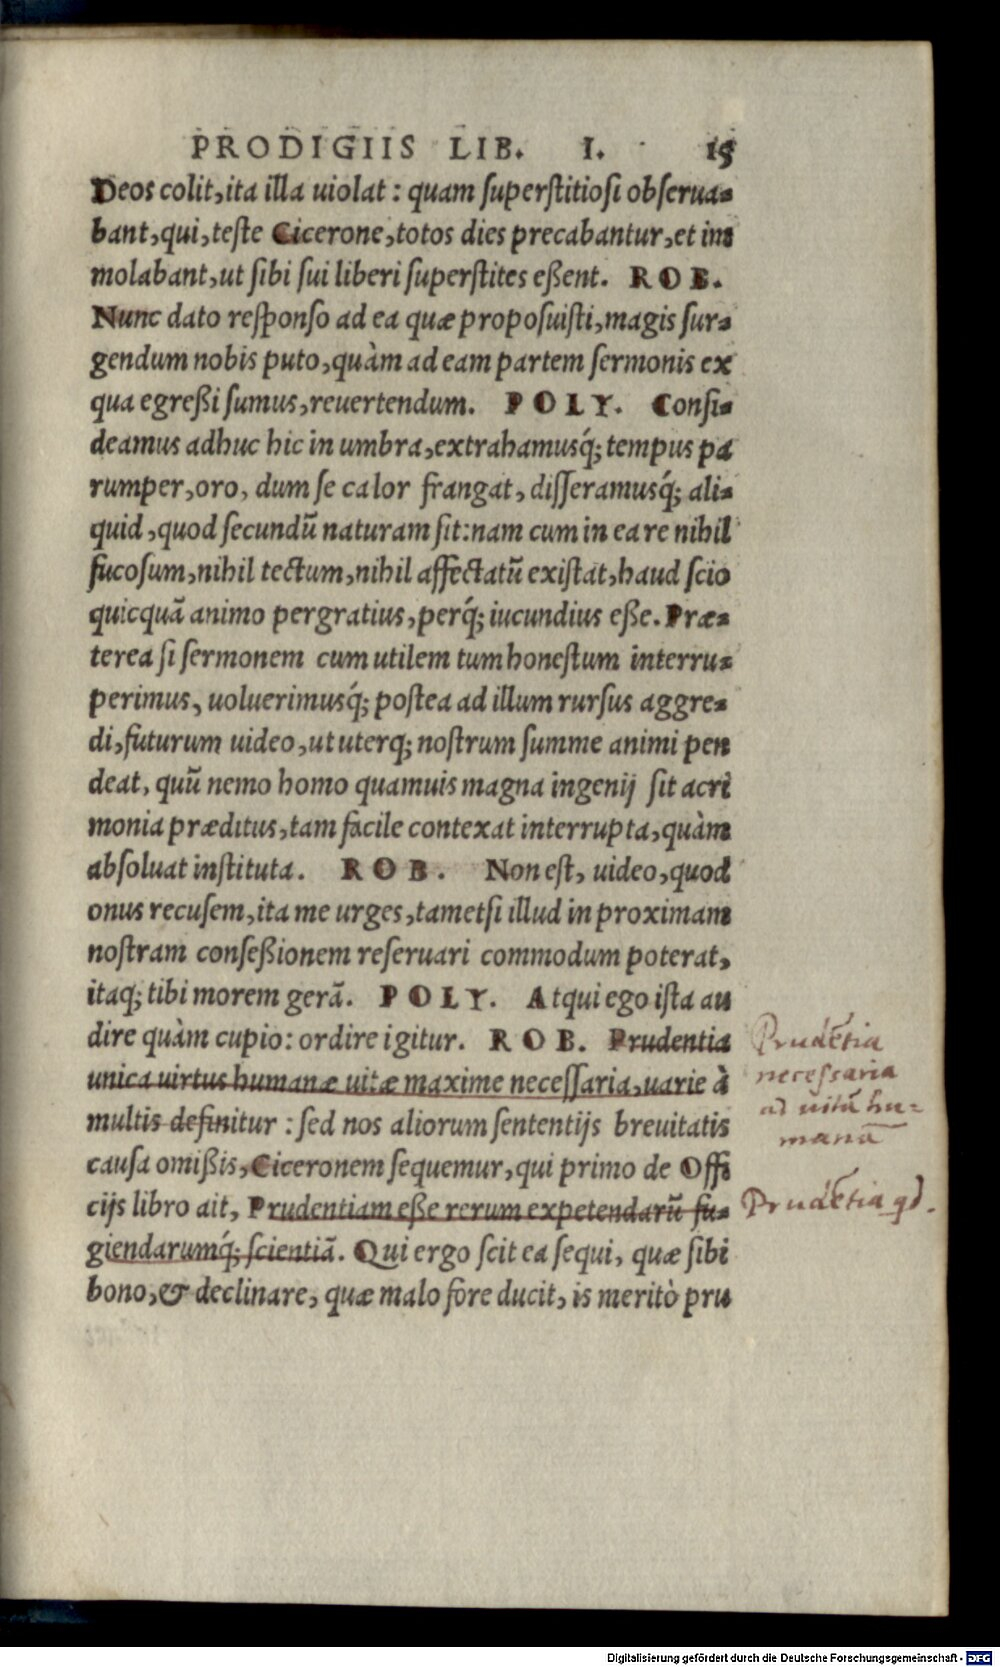 PRODIGIIS LIB. I. 15
Deos colit, ita illa uiolat: quam superstitiosi obserua-
bant, qui, teste Cicerone, totos dies precabantur, et im
molabant, ut sibi sui liberi superstites eßent. ROB.
Nunc dato responso ad ea quæ proposuisti, magis sur-
gendum nobis puto, quàm ad eam partem sermonis ex
qua egreßi sumus, reuertendum. POLY. Consi-
deamus adhuc hic in umbra, extrahamusq́; tempus pa
rumper, oro, dum se calor frangat, disseramusq́; ali-
quid, quod secundũ naturam sit: nam cum in ea re nihil
fucosum, nihil tectum, nihil affectatũ existat, haud scio
quicquã animo pergratius, perq́; iucundius eße. Præ-
terea si sermonem cum utilem tum honestum interru-
perimus, uoluerimusq́; postea ad illum rursus aggre-
di, futurum uideo, ut uterq; nostrum summe animi pen
deat, quũ nemo homo quamuis magna ingenij sit acri
monia præditus, tam facile contexat interrupta, quàm
absoluat instituta. ROB. Non est, uideo, quod
onus recusem, ita me urges, tametsi illud in proximam
nostram conseßionem reseruari commodum poterat,
itaq; tibi morem gerã. POLY. Atqui ego ista au
dire quàm cupio: ordire igitur. ROB. Prudentia
unica uirtus humanæ uitæ maxime necessaria, uarie à
multis definitur: sed nos aliorum sententijs breuitatis
causa omißis, Ciceronem sequemur, qui primo de Offi
cijs libro ait, Prudentiam eße rerum expetendarũ fu-
giendarumq́; scientiã. Qui ergo scit ea sequi, quæ sibi
bono, & declinare, quæ malo fore ducit, is meritò pru
Prudẽtia
necessaria
ad uitã hu-
manã
Prudẽtia qd.
Digitalisierung gefördert durch die Deutsche Forschungsgemeinschaft - DFG